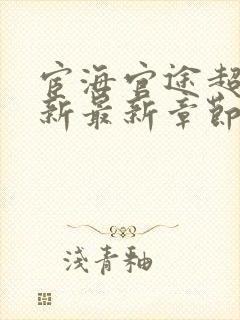 宦海官途超
新最新章節
淺青釉